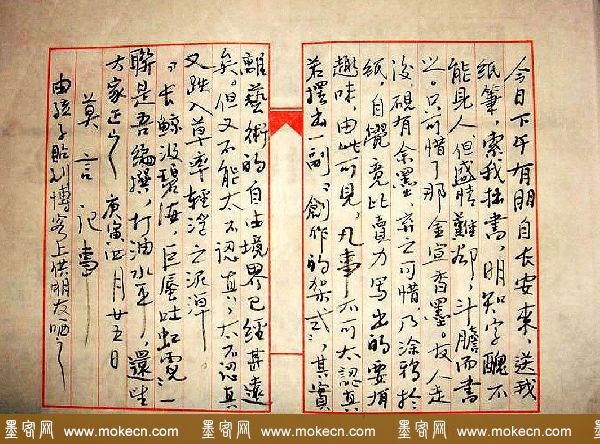 今日下午有朋自长安来,送我
纸笔,索我拙书,明知字醜不
能見人但盛情难却,斗膽而書
之。只可惜了那金宣香墨。友人走
後硯有余墨弃之可惜乃涂鸦於
纸,自覺竟比賣力写出的要有
趣味,由此可見,凡事不可太認真
若擺出一副"創作的架式",其實
離藝術的自由境界已經甚遠
矣。但又不能太不認真,太不認真
又跌入草率輕浮之泥潭
"长鯨波碧海,巨蜃吐虹霓"一
聯是吾編撰,打油水平,還望
大家正之 庚寅正月廿五日
莫言記事
由孩子貼到博客上供朋友哂之
墨客网 www.mokecn.com 墨客网 www.mokecn.com 墨客网 www.mokecn.com